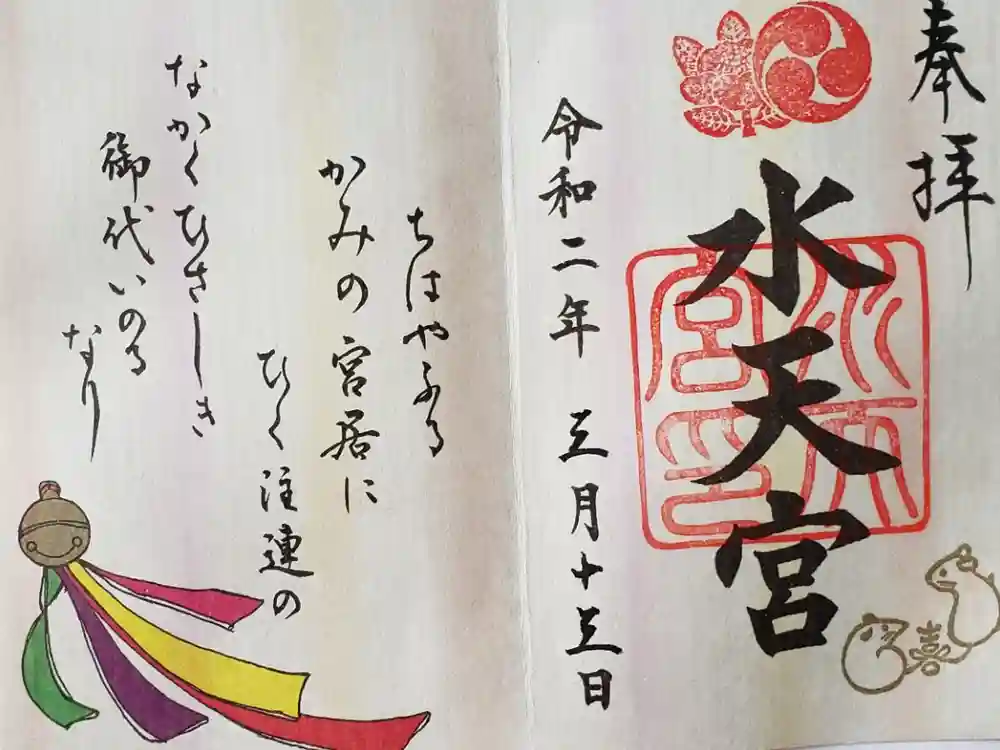 奉拝
水天宮
水天宮印
令和二年 三月十三日
喜
ちはやふる
かみの宮居に
ひく注連の
なかくひさしき
御代いのるなり